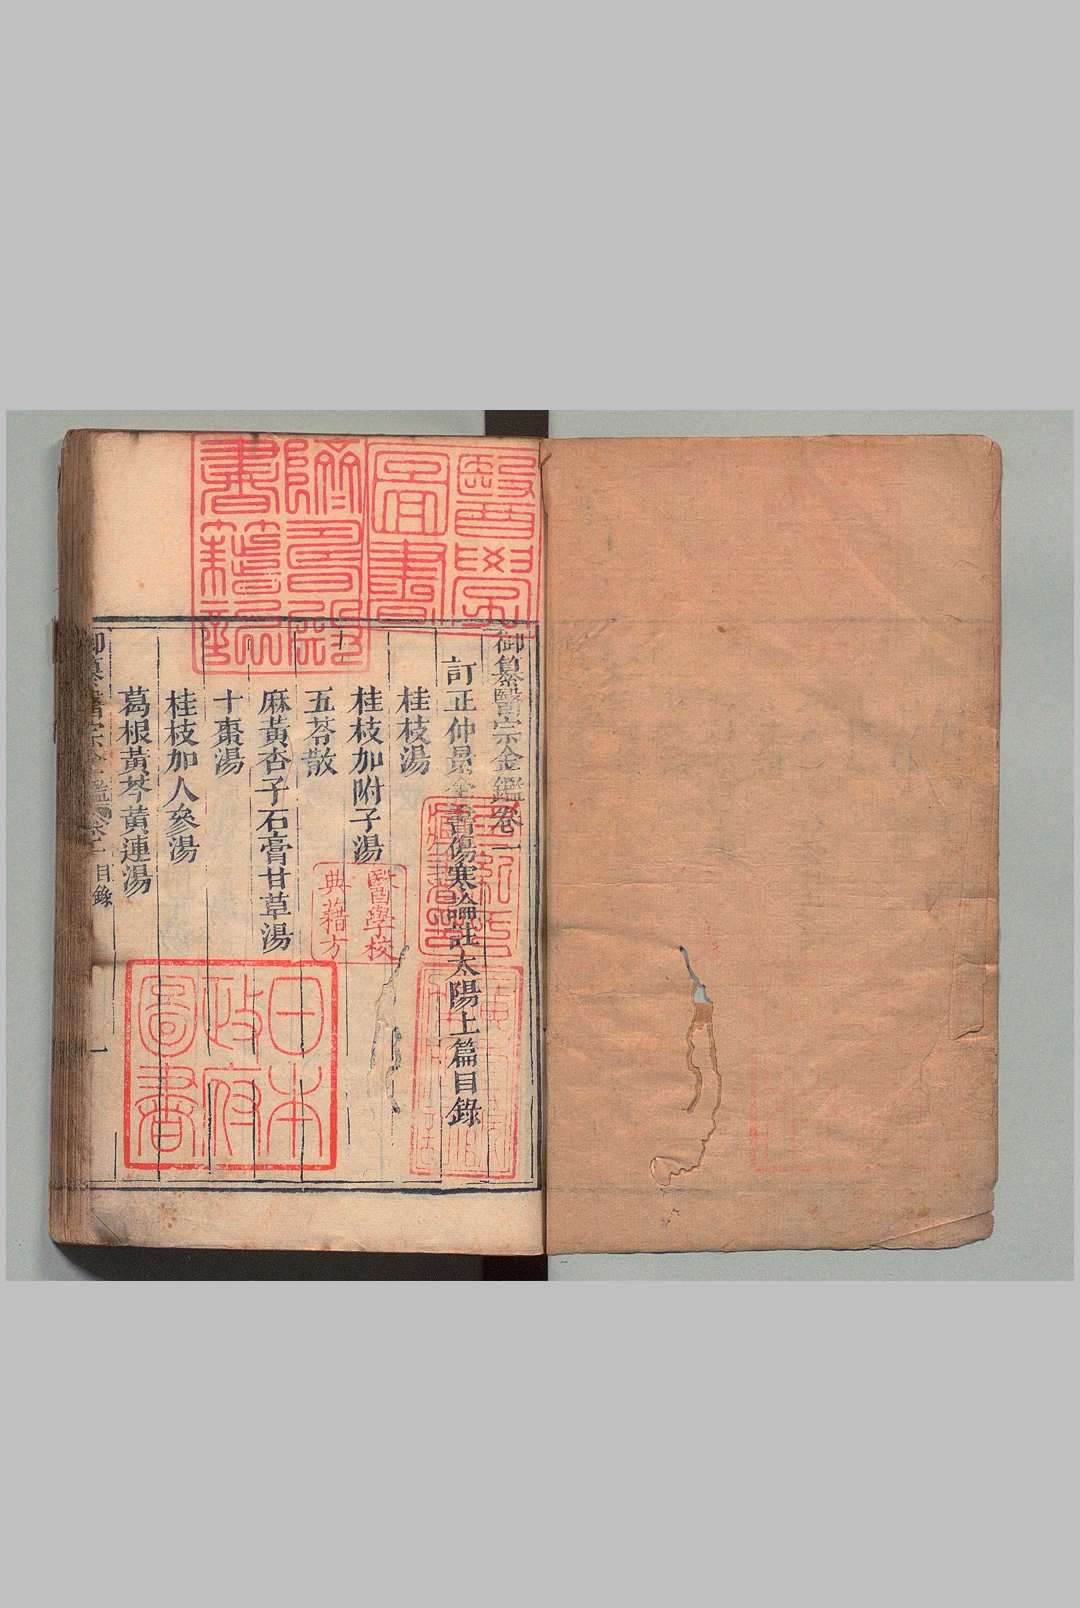 御纂醫宗金鑑卷一
訂正仲景全書傷寒論註太陽上篇目錄
桂枝湯
桂枝加附子湯
五苓散
麻黃杏子石膏甘草湯
十棗湯
桂枝加人參湯
葛根黃芩黃連湯
御纂醫宗金鑑 卷一 目錄
一
醫學圖書
躋壽殿書籍記
醫學校典藉方
日本政府圖書